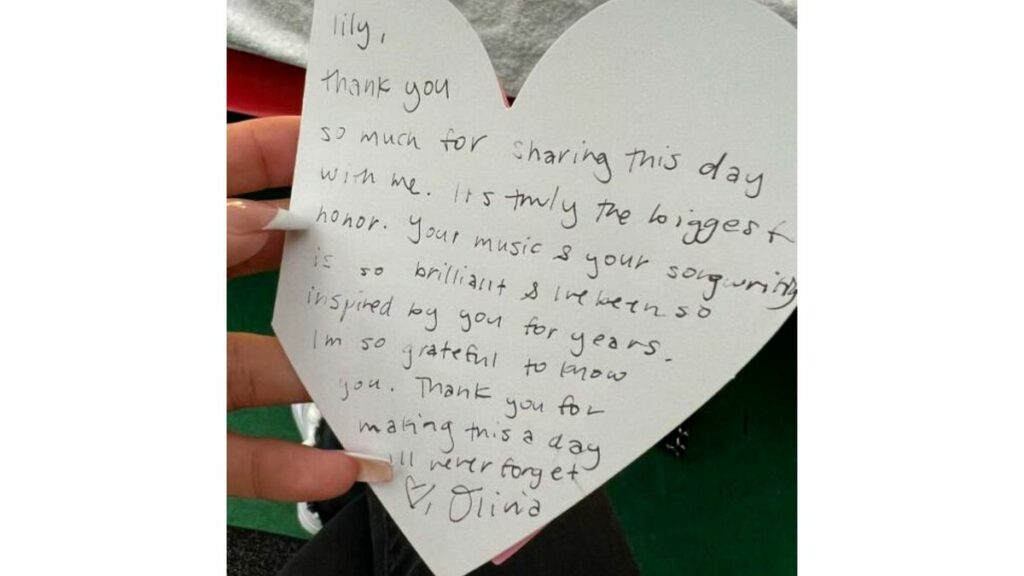 lily,
thank you
so much for sharing this day
with me. Its truly the biggest
honor. Your music & your songwriting
is so brilliant & Ive been so
inspired by you for years.
Im so grateful to know
you. Thank you for
making this a day
ill never forget
♡, Olivia